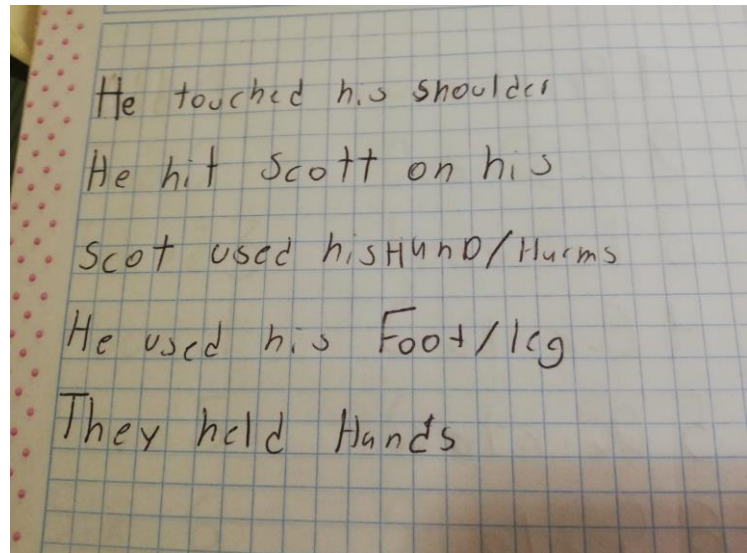 He touched his shoulder
He hit Scott on his
Scot used his HanD/Harms
He used his Foot/leg
They held Hands